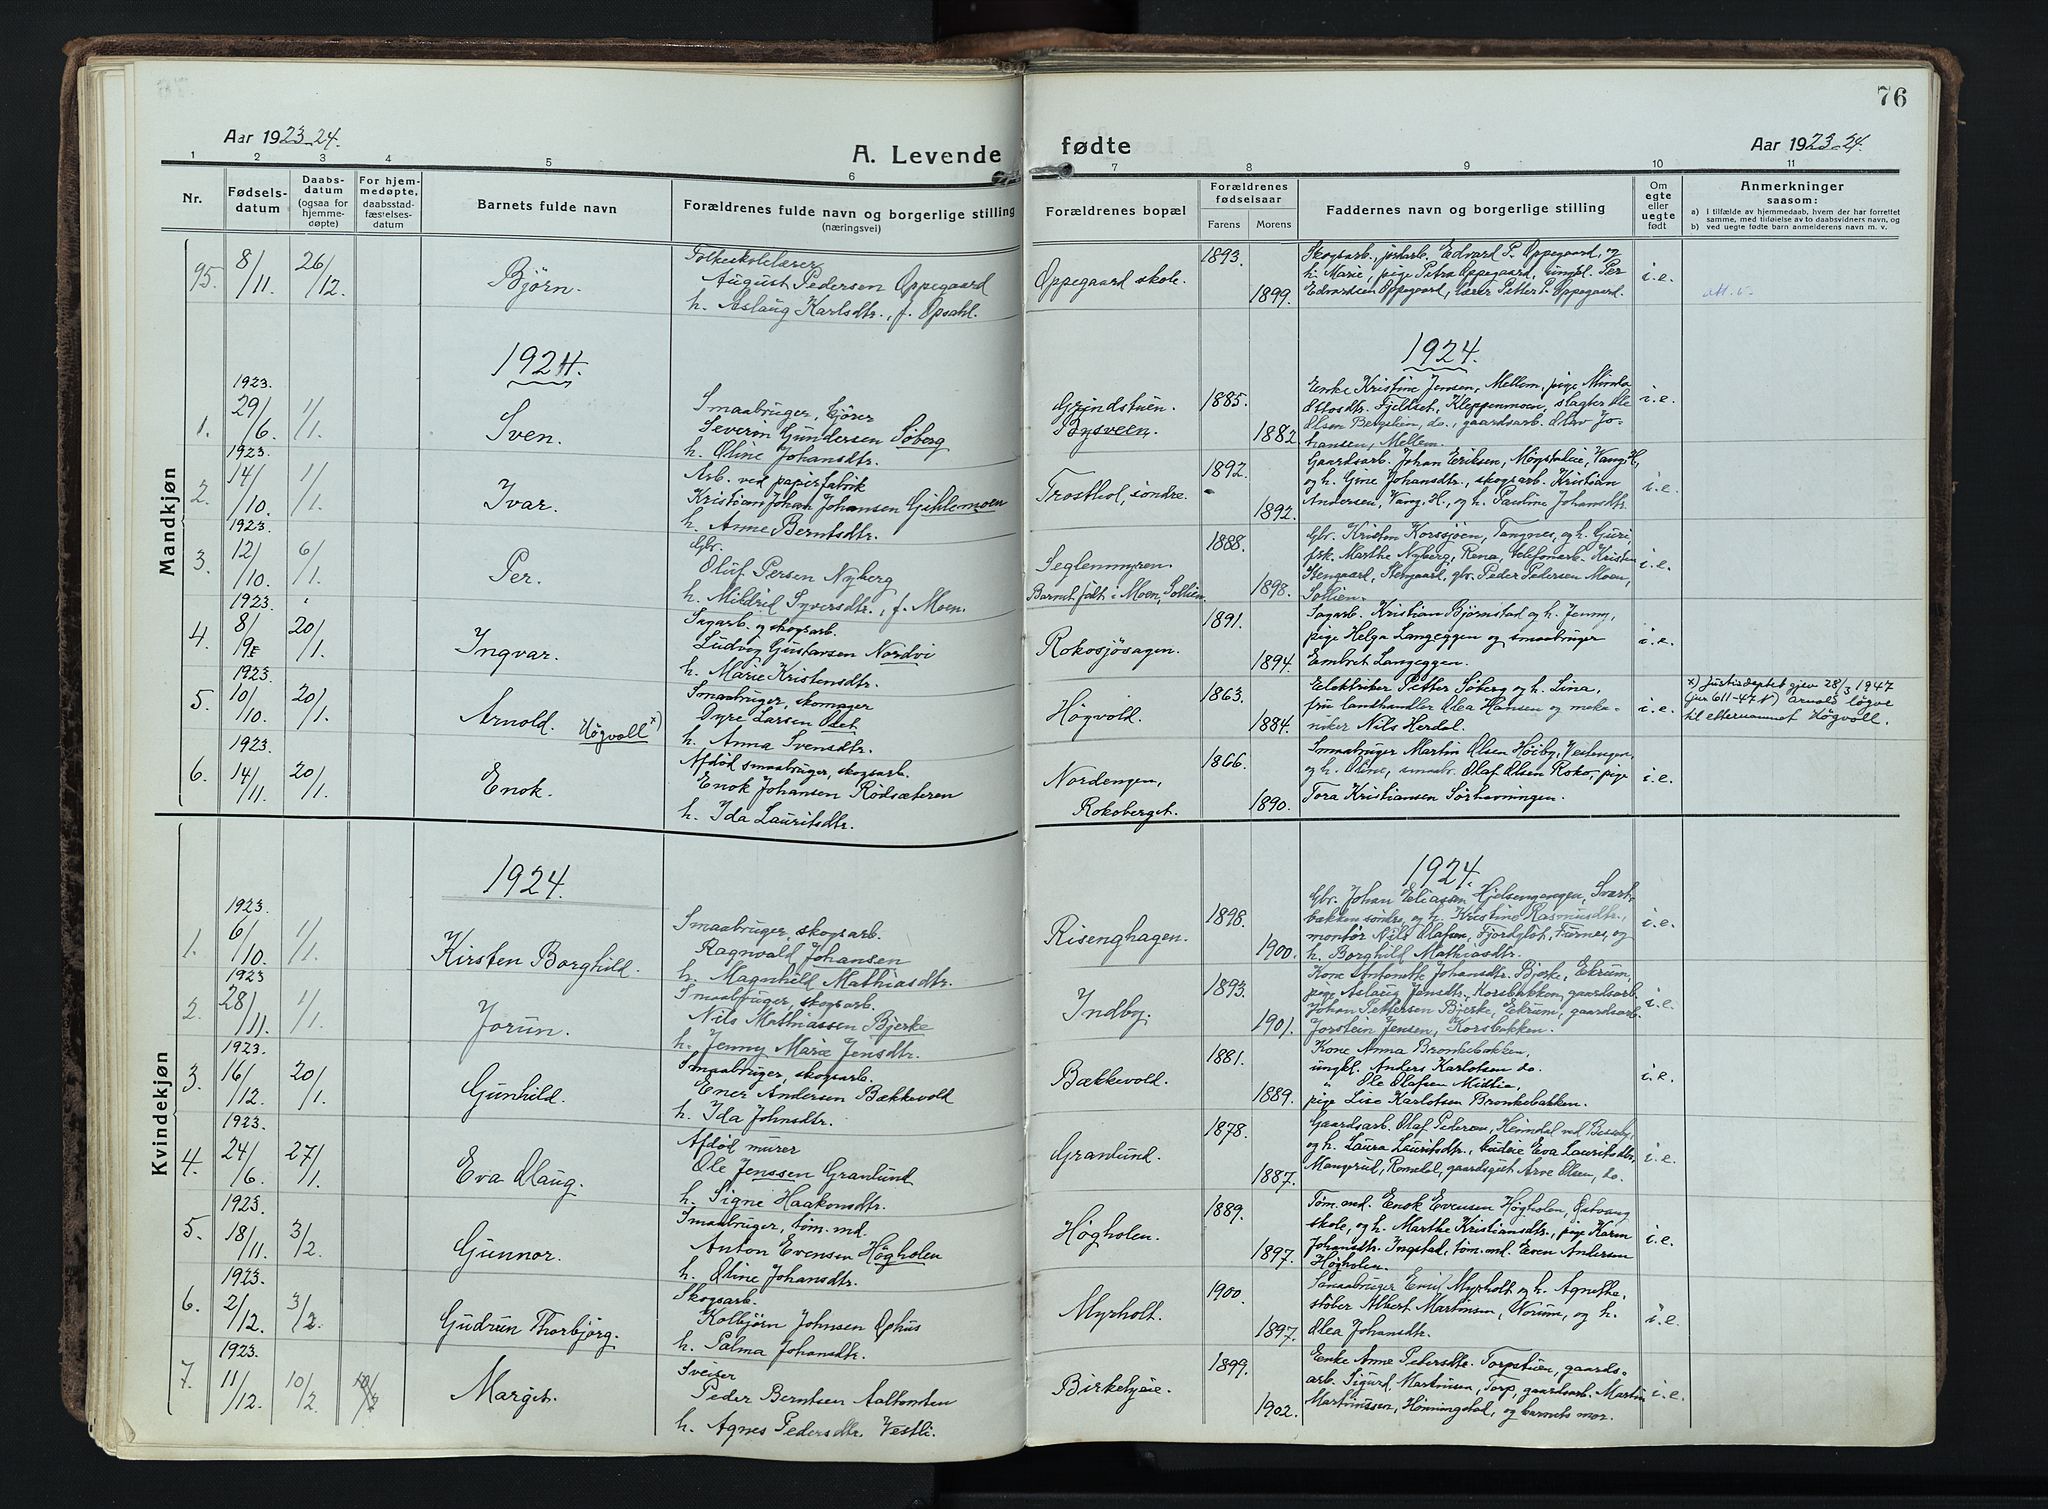 76
Aar 1923-24.
A. Levende fødte
Aar 1923-24.
1 2 3 4 5 6 7 8 9 10 11
Nr.
Fødsels-
datum
Daabs-
datum
(ogsaa for
hjemme-
døpte)
For hjem-
medøpte,
daabsstad-
fæstelses-
datum
Barnets fulde navn
Forældrenes fulde navn og borgerlige stilling
(næringsvei)
Forældrenes bopæl
Forældrenes
fødselsaar
Farens Morens
Faddernes navn og borgerlige stilling
Om
egte
eller
uegte
født
Anmerkninger
saasom:
a) I tilfælde av hjemmedaab, hvem der har forrettet
samme, med tilføielse av to daabsvidners navn, og
b) ved uegte fødte barn anmelderens navn m. v.
Mandkjøn
95. 8/11. 26/12. Bjørn.
Folkeskolelærer
August Pedersen Oppegaard
h. Aslaug Karlsdtr., f. Opsahl.
Oppegaard skole. 1893. 1899.
Skogsarb., jordarb. Edvard P. Oppegaard, og
h. Marie, pige Petra Oppegaard, ungkl. Per
Edvardsen Oppegaard, lærer Petter P. Oppegaard.
i.e.
1924.
1924.
1. 1923. 29/6. 1/1. Sven.
Smaabruger, kjører
Severin Gundersen Søberg
h. Oline Johansdtr.
Grindstuen.
Bysveen.
1885. 1882.
Enke Kristine Jensen, Mellem, pige Minda
Ottosdtr. Fjeldset, Kleppenmoen, slagter Ole
Olsen Bergslien, do., gaardsarb. Olav Jo-
hansen, Mellem.
i.e.
2. 1923. 14/10. 1/1. Ivar.
Arb. ved papirfabrik
Kristian Johan Johansen Gihlemoen
h. Anne Berntsdtr.
Trosthol, söndre. 1892. 1892.
Gaardsarb. Johan Eriksen, Vang H.,
og h. Gine Johansdtr., skogsarb. Kristian
Andersen, Vang, H., og h. Pauline Johansdtr.
i.e.
3. 1923. 12/10. 6/1. Per.
Gbr.
Oluf Persen Nyberg
h. Mildrid Syversdtr., f. Moen.
Seglenmyren.
Barnet født i Moen, Sollien.
1888. 1898.
Gbr. Kristen Korssjøen, Tangnes, og h. Guri,
fsk. Marthe Nyberg, Rena, telefonarb. Kristen
Stengaard, Stengaard, gbr. Peder Pedersen Moen,
Sollien.
i.e.
4. 1923. 8/ 20/1. Ingvar.
Sagarb. og skogsarb.
Ludvig Gustavsen Nordvi
h. Marie Kristensdtr.
Rokosjøsagen. 1891. 1894.
Sagarb. Kristian Bjørnstad og h. Jenny,
pige Helga Langeggen og smaabruger
Embret Langeggen.
i.e.
5. 1923. 10/10. 20/1. Arnold. Høgvoll x)
Smaabruger, skomager
Dyre Larsen Olet
h. Anna Svensdtr.
Høgvold. 1863. 1884.
Elektriker Petter Søberg og h. Lina,
fru landhandler Olea Hansen og meka-
niker Nils Herdal.
i.e.
x) Justisdeptet gjev 28/3 1947
(jnr 611-47 A) Arnold løgve
til etternamnet Høgvoll.
6. 1923. 14/11. 20/1. Enok.
Afdød smaabruger, skogsarb.
Enok Johansen Rødsæteren
h. Ida Lauritsdtr.
Nordengen,
Rokoberget.
1866. 1890.
Smaabruger Martin Olsen Høiby, Vestengen,
og h. Oline, smaabr. Olaf Olsen Roko, pige
Tora Kristiansen Sørhovningen.
i.e.
Kvindekjøn
1924.
1924.
1. 1923. 6/10. 1/1. Kirsten Borghild.
Smaabruger, skogsarb.
Ragnvald Johansen
h. Magnhild Mathiasdtr.
Risenghagen. 1898. 1900.
Gbr. Johan Eliassen Hjelsengengen, Svart-
bækken søndre, og h. Kristine Rasmusdtr.,
montör Nils Olafsen, Fjordgløt, Furnes, og
h. Borghild Mathiasdtr.
i.e.
2. 1923 28/11. 1/1. Jorun.
Smaabruger, skogsarb.
Nils Mathiassen Bjerke
h. Jenny Marie Jensdtr.
Indby. 1893. 1901.
Kone Antonette Johansdtr. Bjerke, Ekrum,
pige Aslaug Jensdtr., Korsbakken, gaardsarb.
Johan Pettersen Bjerke, Ekrum, gaardsarb.
Jorstein Jensen, Korsbakken.
i.e.
3. 1923. 16/12. 20/1. Gunhild.
Smaabruger, skogsarb.
Ener Andersen Bækkevold
h. Ida Johnsdtr.
Bækkevold. 1881. 1889.
Kone Anna Bronkebakken,
ungkl. Anders Karlotsen do.
" Ole Olafsen Midtlie,
pige Lise Karlotsen Bronkebakken.
i.e.
4. 1923. 24/6. 27/1. Eva Olaug.
Afdød murer
Ole Jenssen Granlund
h. Signe Haakonsdtr.
Granlund. 1878. 1887.
Gaardsarb. Olaf Pedersen, Heimdal ved
og h. Laura Lauritsdtr., budeie Eva Lauritsdtr.,
Mangrud, Romedal, gaardsgut Arve Olsen, do.
i.e.
5. 1923. 18/11. 3/2. Gunnor.
Smaabruger, tøm. md.
Anton Evensen Høgholen
h. Oline Johansdtr.
Høgholen. 1889. 1897.
Tøm. md. Enok Evensen Høgholen, Østvang
skole, og h. Marthe Kristiansdtr., pige Karen
Johansdtr. Ingstad, tøm. md. Even Andersen
Høgholen.
i.e.
6. 1923. 2/12. 3/2. Gudrun Thorbjörg.
Skogsarb.
Kolbjørn Johnsen Ophus
h. Palma Johansdtr.
Myrholt. 1900. 1897.
Smaabruger Emil Myrholt og h. Agnethe,
støber Albert Martinsen, Norum, og h.
Olea Johansdtr.
i.e.
7. 1923. 11/12. 10/2. Margit.
Sveiser
Peder Berntsen Aaltomten
h. Agnes Pedersdtr. Vestli.
Birkeheie. 1899. 1902.
Enke Anne Pedersdtr. Torpstuen, gaards-
arb. Sigurd Martinsen, Torp, gaardsarb. Martin
Martinussen, Hørningstad, og barnets mor.
i.e.